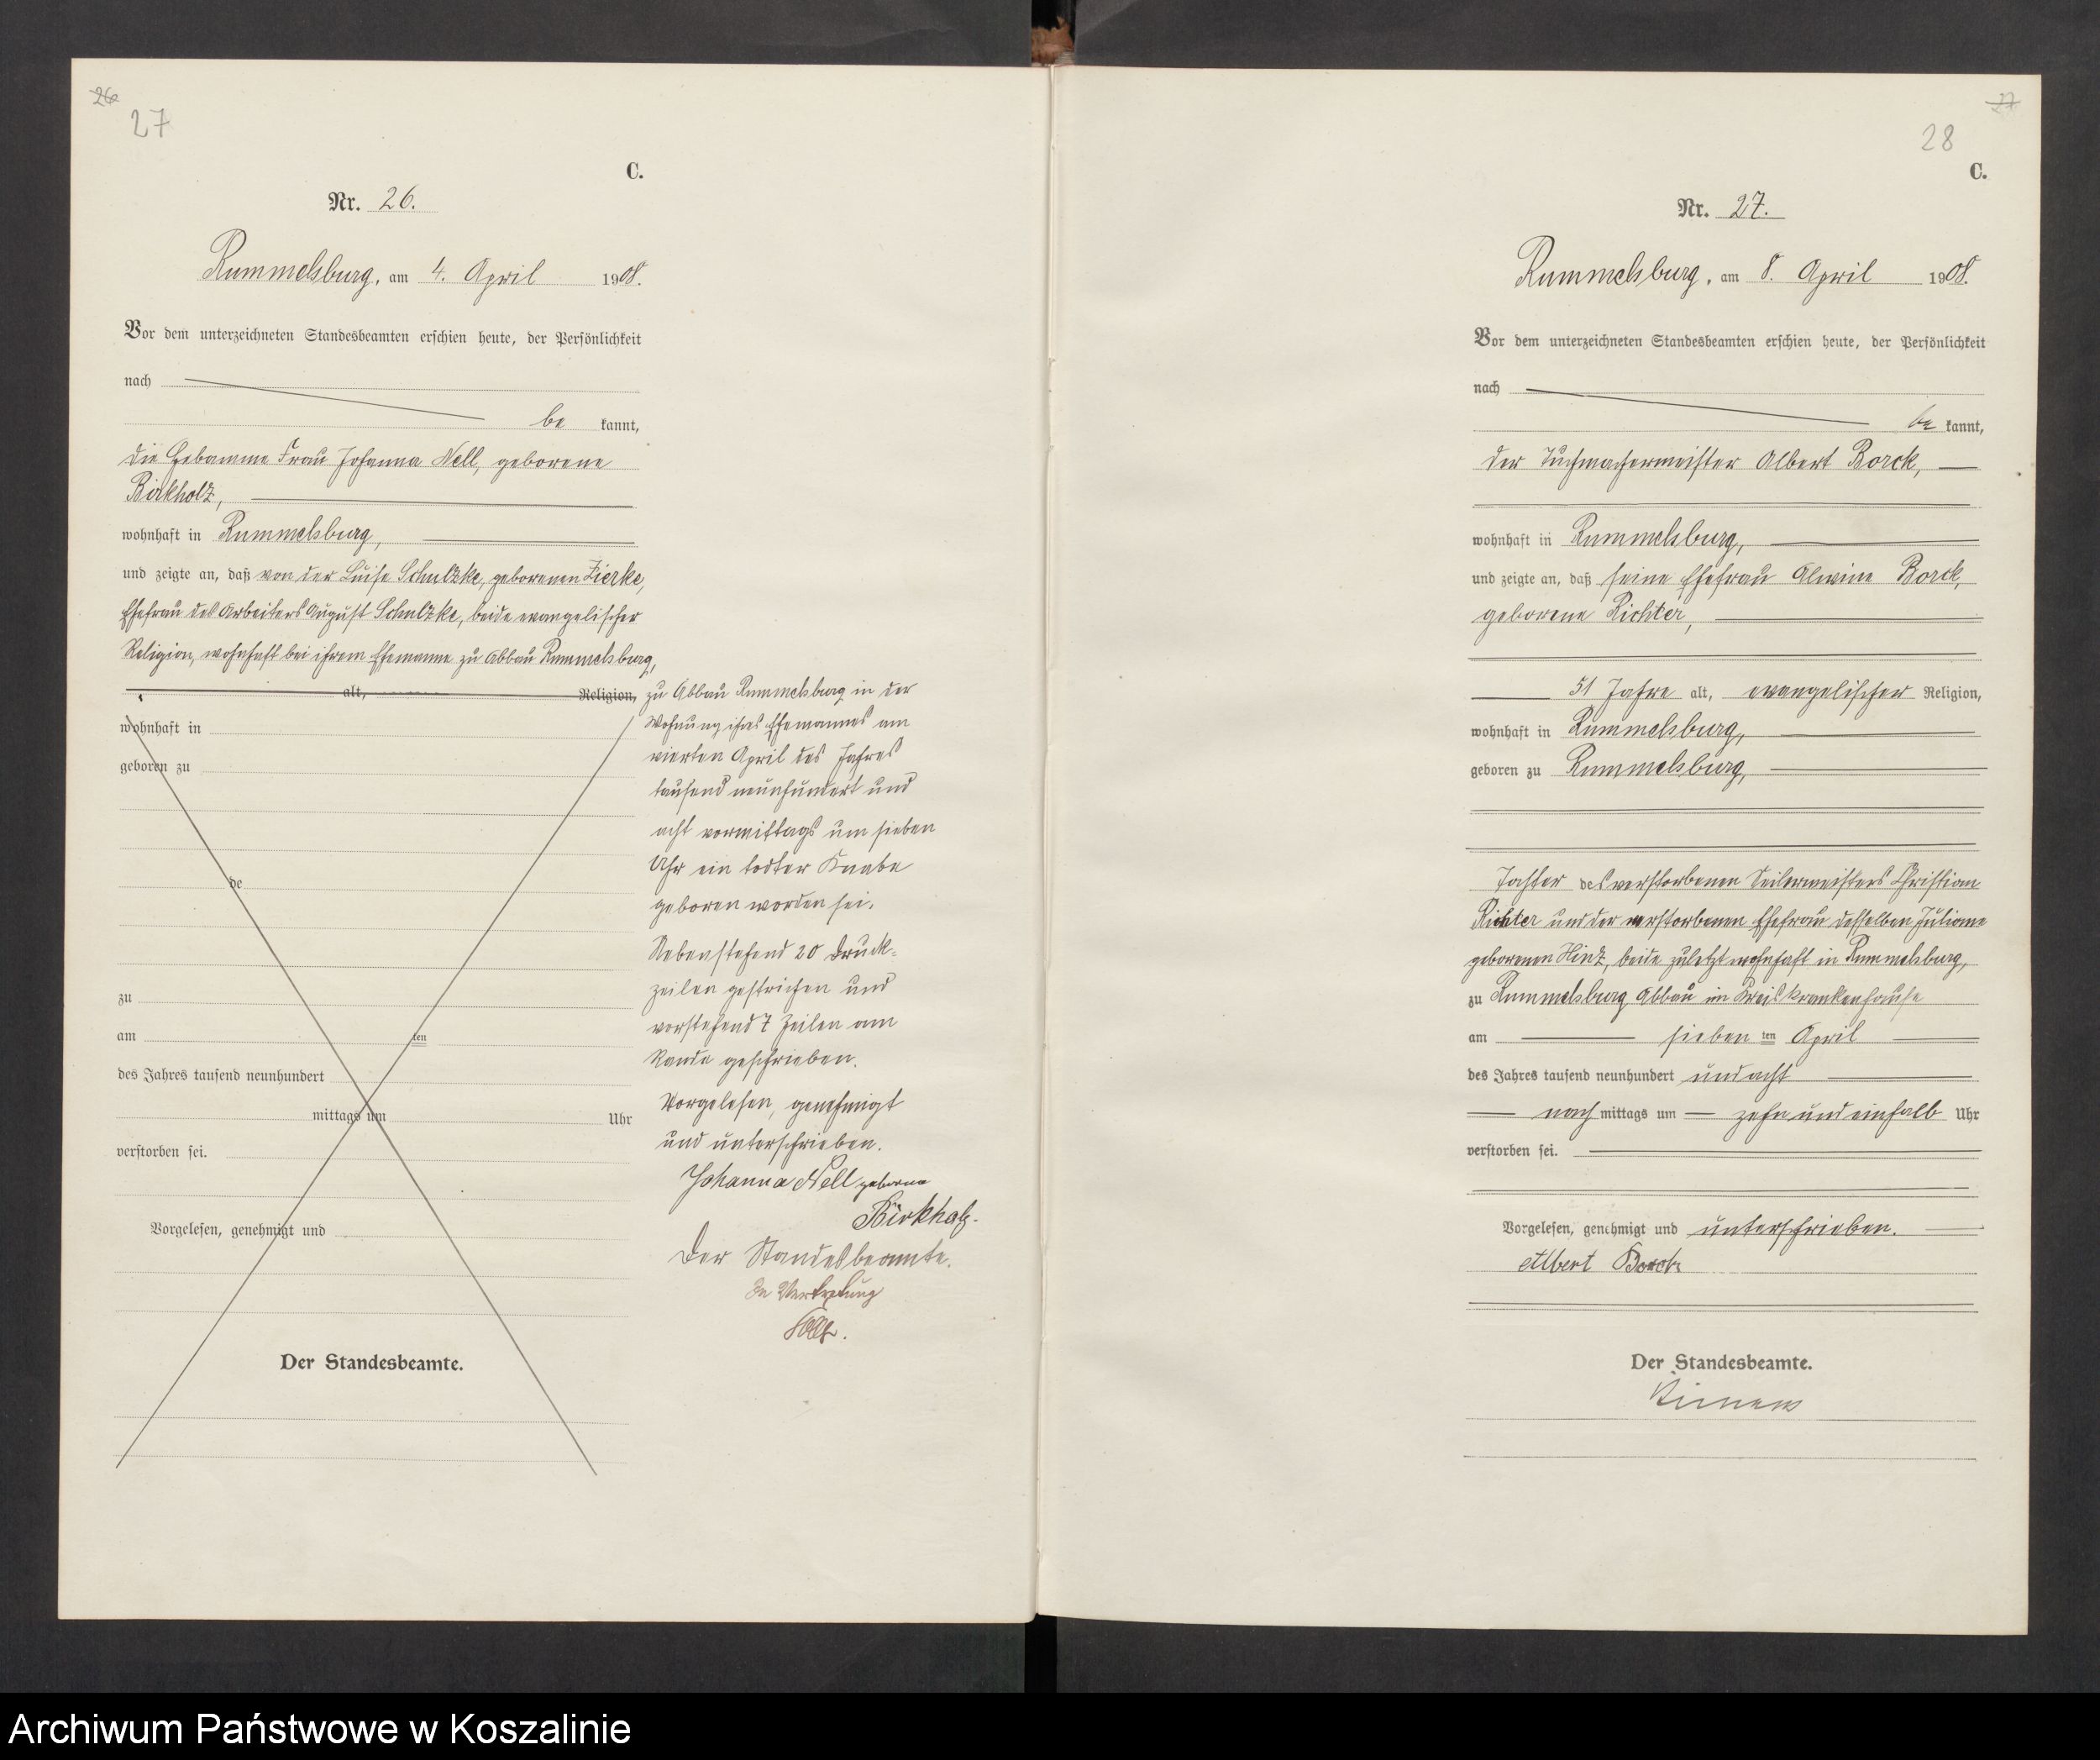 26
27
C.
Nr. 26.
Rummelsburg, am 4. April 1908.
Vor dem unterzeichneten Standesbeamten erschien heute, der Persönlichkeit
nach
be kannt,
die Hebamme Frau Johanna Nell, geborene
Birkholz,
wohnhaft in Rummelsburg,
und zeigte an, daß von der Luise Schulzke, geborenen Zierke,
Ehefrau des Arbeiters August Schulzke, beide evangelischer
Religion, wohnhaft bei ihrem Ehemanne zu Abbau Rummelsburg,
alt, Religion,
wohnhaft in
geboren zu
de
zu
am ten
des Jahres tausend neunhundert
mittags um Uhr
verstorben sei.
Vorgelesen, genehmigt und
Der Standesbeamte.
zu Abbau Rummelsburg in der
Wohnung ihres Ehemannes am
vierten April des Jahres
tausend neunhundert und
acht vormittags um sieben
Uhr ein todter Knabe
geboren worden sei.
Nebenstehend 20 Druck-
zeilen gestrichen und
vorstehend 7 Zeilen am
Rande geschrieben.
Vorgelesen, genehmigt
und unterschrieben.
Johanna Nell geborne
Birkholz.
Der Standesbeamte.
In Vertretung
27
28
C.
Nr. 27.
Rummelsburg, am 8. April 1908.
Vor dem unterzeichneten Standesbeamten erschien heute, der Persönlichkeit
nach
be kannt,
der Tuchmachermeister Albert Borck,
wohnhaft in Rummelsburg,
und zeigte an, daß seine Ehefrau Alwine Borck,
geborene Richter,
51 Jahre alt, evangelischer Religion,
wohnhaft in Rummelsburg,
geboren zu Rummelsburg,
Tochter des verstorbenen Seilermeisters Christian
Richter und der verstorbenen Ehefrau desselben Juliane
geborenen Hinz, beide zuletzt wohnhaft in Rummelsburg,
zu Rummelsburg Abbau im Kreiskrankenhause
am sieben ten April
des Jahres tausend neunhundert und acht
nach mittags um zehn und einhalb Uhr
verstorben sei.
Vorgelesen, genehmigt und unterschrieben.
Albert Borck
Der Standesbeamte.
Archiwum Państwowe w Koszalinie